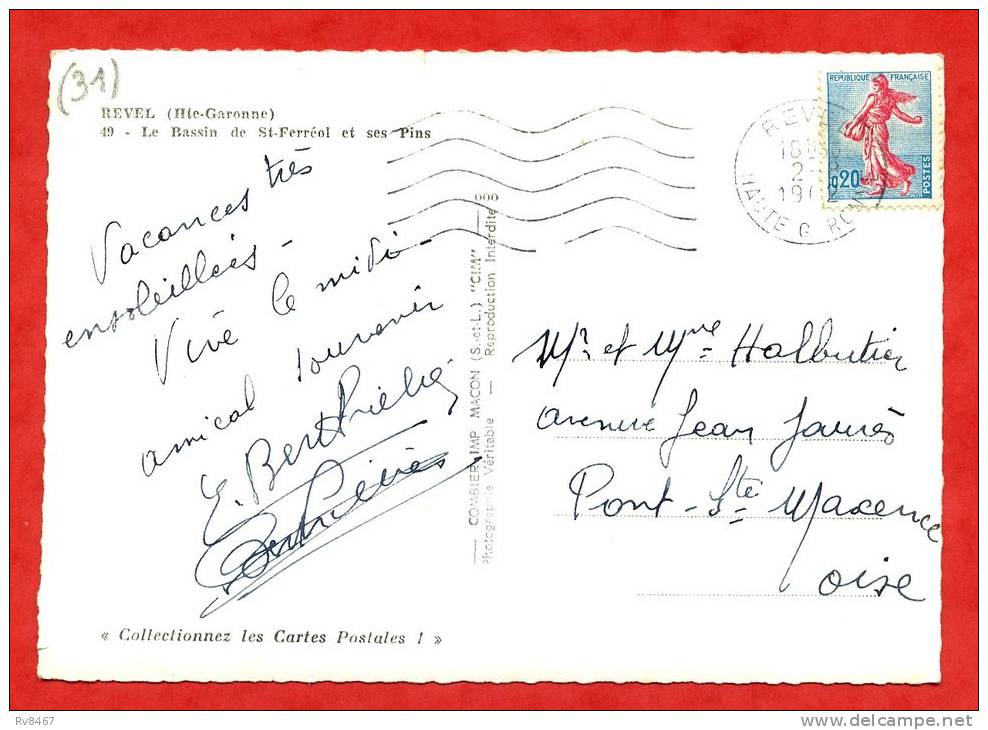 (31)
REVEL (Hte-Garonne)
49 - Le Bassin de St-Ferréol et ses Pins
Vacances très
ensoleillées -
Vive le midi -
amical souvenir
E. Berthelié
« Collectionnez les Cartes Postales ! »
COMBIER IMP MACON (S.-et-L.) "CIM"
Photographie Véritable — Reproduction Interdite
REPUBLIQUE FRANÇAISE
0,20
POSTES
HAUTE G RON
Mr et Mme Halbutier
avenue Jean Jaurès
Pont-Ste Maxence
oise
Rv8467
www.delcampe.net